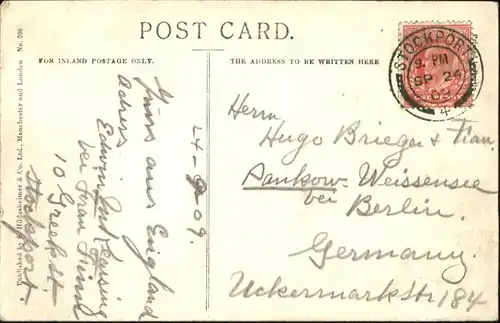 POST CARD.
FOR INLAND POSTAGE ONLY.
THE ADDRESS TO BE WRITTEN HERE
Published by Hildesheimer & Co. Ltd., Manchester and London No. 308
24-9-09.
Gruss aus England
Adress
Edwin
bei Frau
10 Greekst.
Stockport.
STOCKPORT
9. PM
SP 24
09
4
Herrn
Hugo Brieger & Frau.
Pankow-Weissensee
bei
Berlin.
Germany.
Uckermarkstr 184